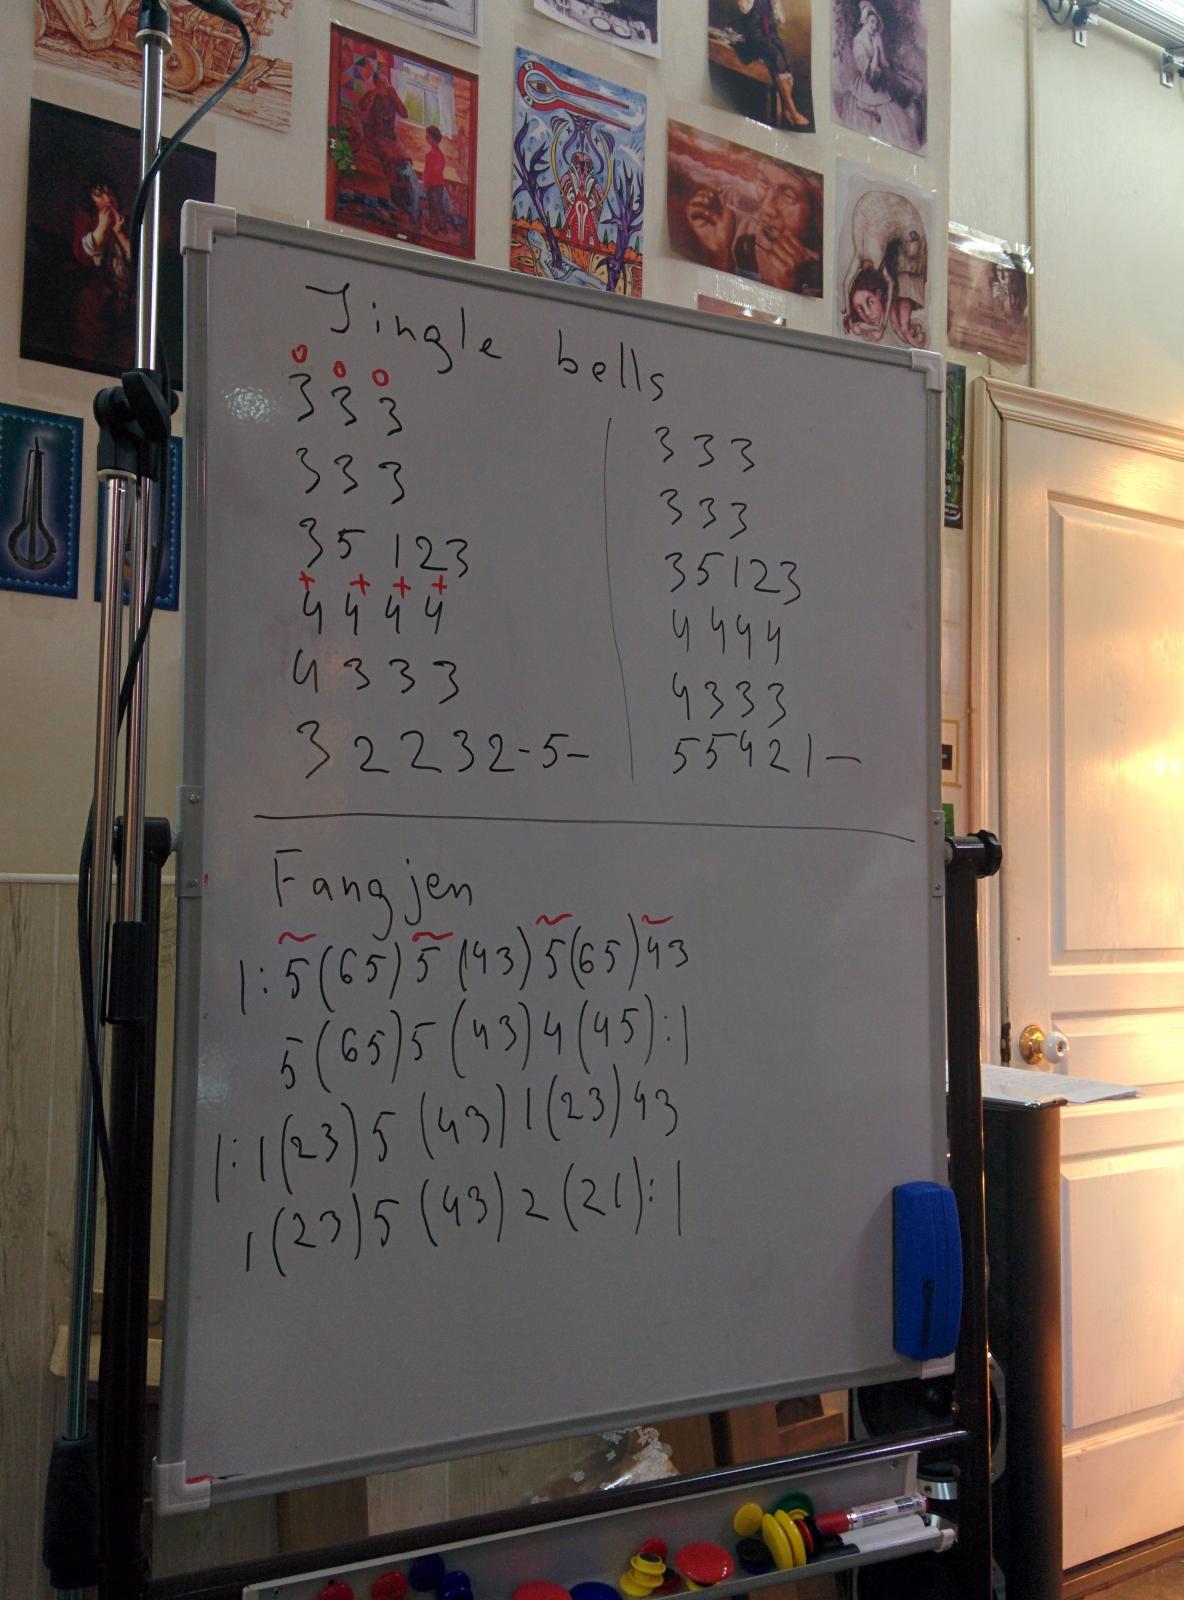 Jingle bells
3 3 3
3 3 3
3 5 1 2 3
4 4 4 4
4 3 3 3
3 2 2 3 2 - 5 -
3 3 3
3 3 3
3 5 1 2 3
4 4 4 4
4 3 3 3
5 5 4 2 1 —
Fangjen
|: 5 (65) 5 (43) 5 (65) 43
5 (65) 5 (43) 4 (45) :|
|: 1 (23) 5 (43) 1 (23) 43
1 (23) 5 (43) 2 (21) :|